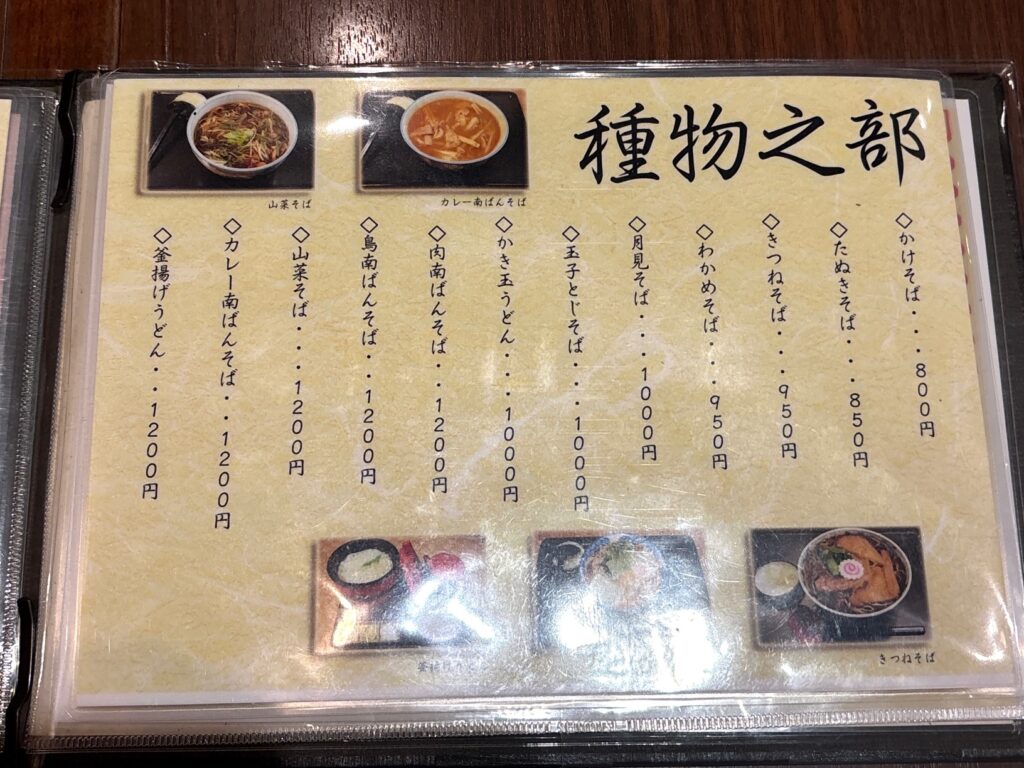 種物之部
◇かけそば・・・８００円
◇たぬきそば・・・８５０円
◇きつねそば・・・９５０円
◇わかめそば・・・９５０円
◇月見そば・・・１０００円
◇玉子とじそば・・・１０００円
◇かき玉うどん・・・１０００円
◇肉南ばんそば・・１２００円
◇鳥南ばんそば・・１２００円
◇山菜そば・・・１２００円
◇カレー南ばんそば・・１２００円
◇釜揚げうどん・・１２００円
山菜そば
カレー南ばんそば
きつねそば